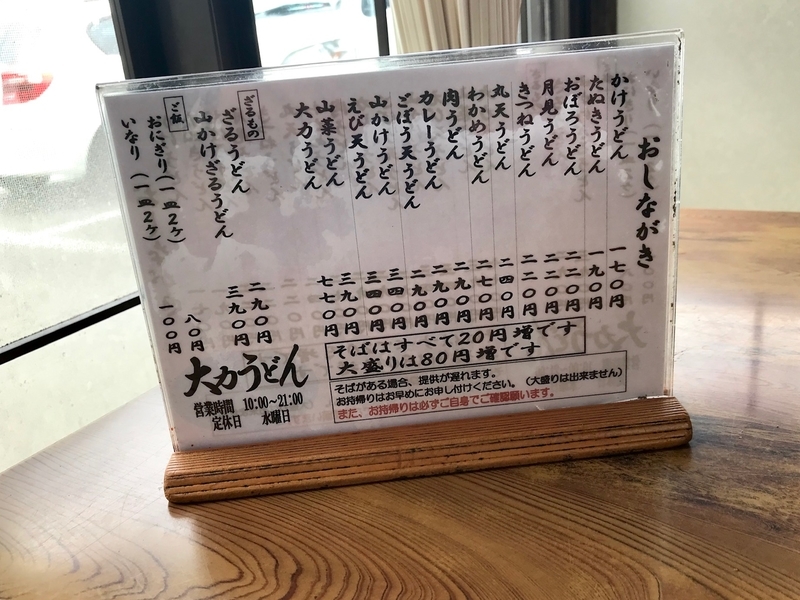 おしながき
かけうどん 一七〇円
たぬきうどん 一九〇円
おぼろうどん 二二〇円
月見うどん 二二〇円
きつねうどん 二二〇円
丸天うどん 二四〇円
わかめうどん 二七〇円
肉うどん 二九〇円
カレーうどん 二九〇円
ごぼう天うどん 二九〇円
山かけうどん 三四〇円
えび天うどん 三四〇円
山菜うどん 三九〇円
大力うどん 七七〇円
ざるもの
ざるうどん 二九〇円
山かけざるうどん 三九〇円
ご飯
おにぎり(一皿2ヶ) 八〇円
いなり(一皿2ヶ) 一〇〇円
そばはすべて20円増です
大盛りは80円増です
そばがある場合、提供が遅れます。
お持帰りはお早めにお申し付けください。(大盛りは出来ません)
また、お持帰りは必ずご自身でご確認願います。
大力うどん
営業時間 10:00〜21:00
定休日 水曜日